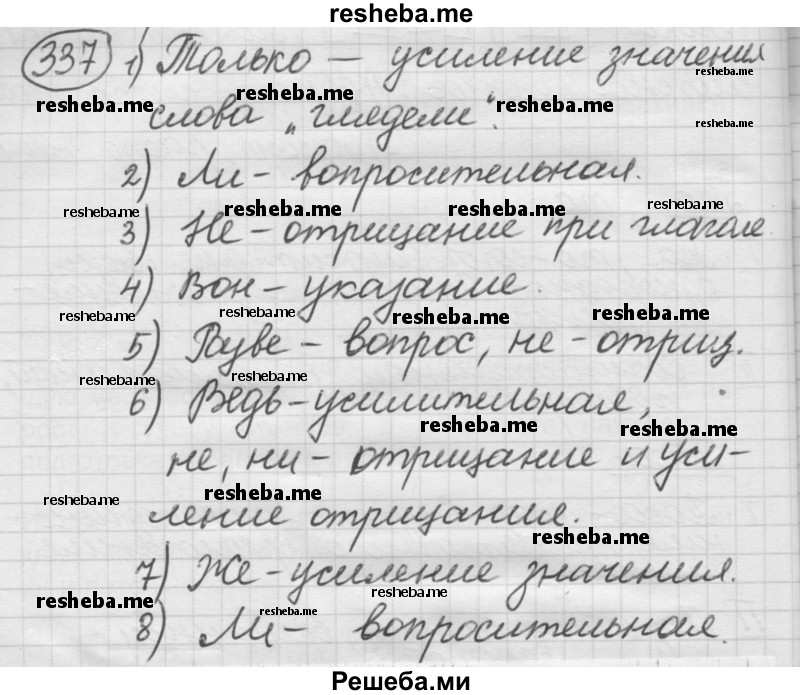 resheba.me
337 1) Только — усиление значения
resheba.me
resheba.me resheba.me resheba.me
слова „глядели“.
resheba.me
2) Ли - вопросительная.
resheba.me resheba.me resheba.me resheba.me
3) Не - отрицание при глаголе
4) Вон - указание.
resheba.me resheba.me resheba.me resheba.me
5) - вопрос, не - отриц.
resheba.me resheba.me
6) Ведь - усилительная,
resheba.me resheba.me
не, ни - отрицание и уси-
resheba.me resheba.me
ление отрицания.
resheba.me
7) Же - усиление значения.
resheba.me resheba.me resheba.me
8) Ли - вопросительная.
Решеба.ми